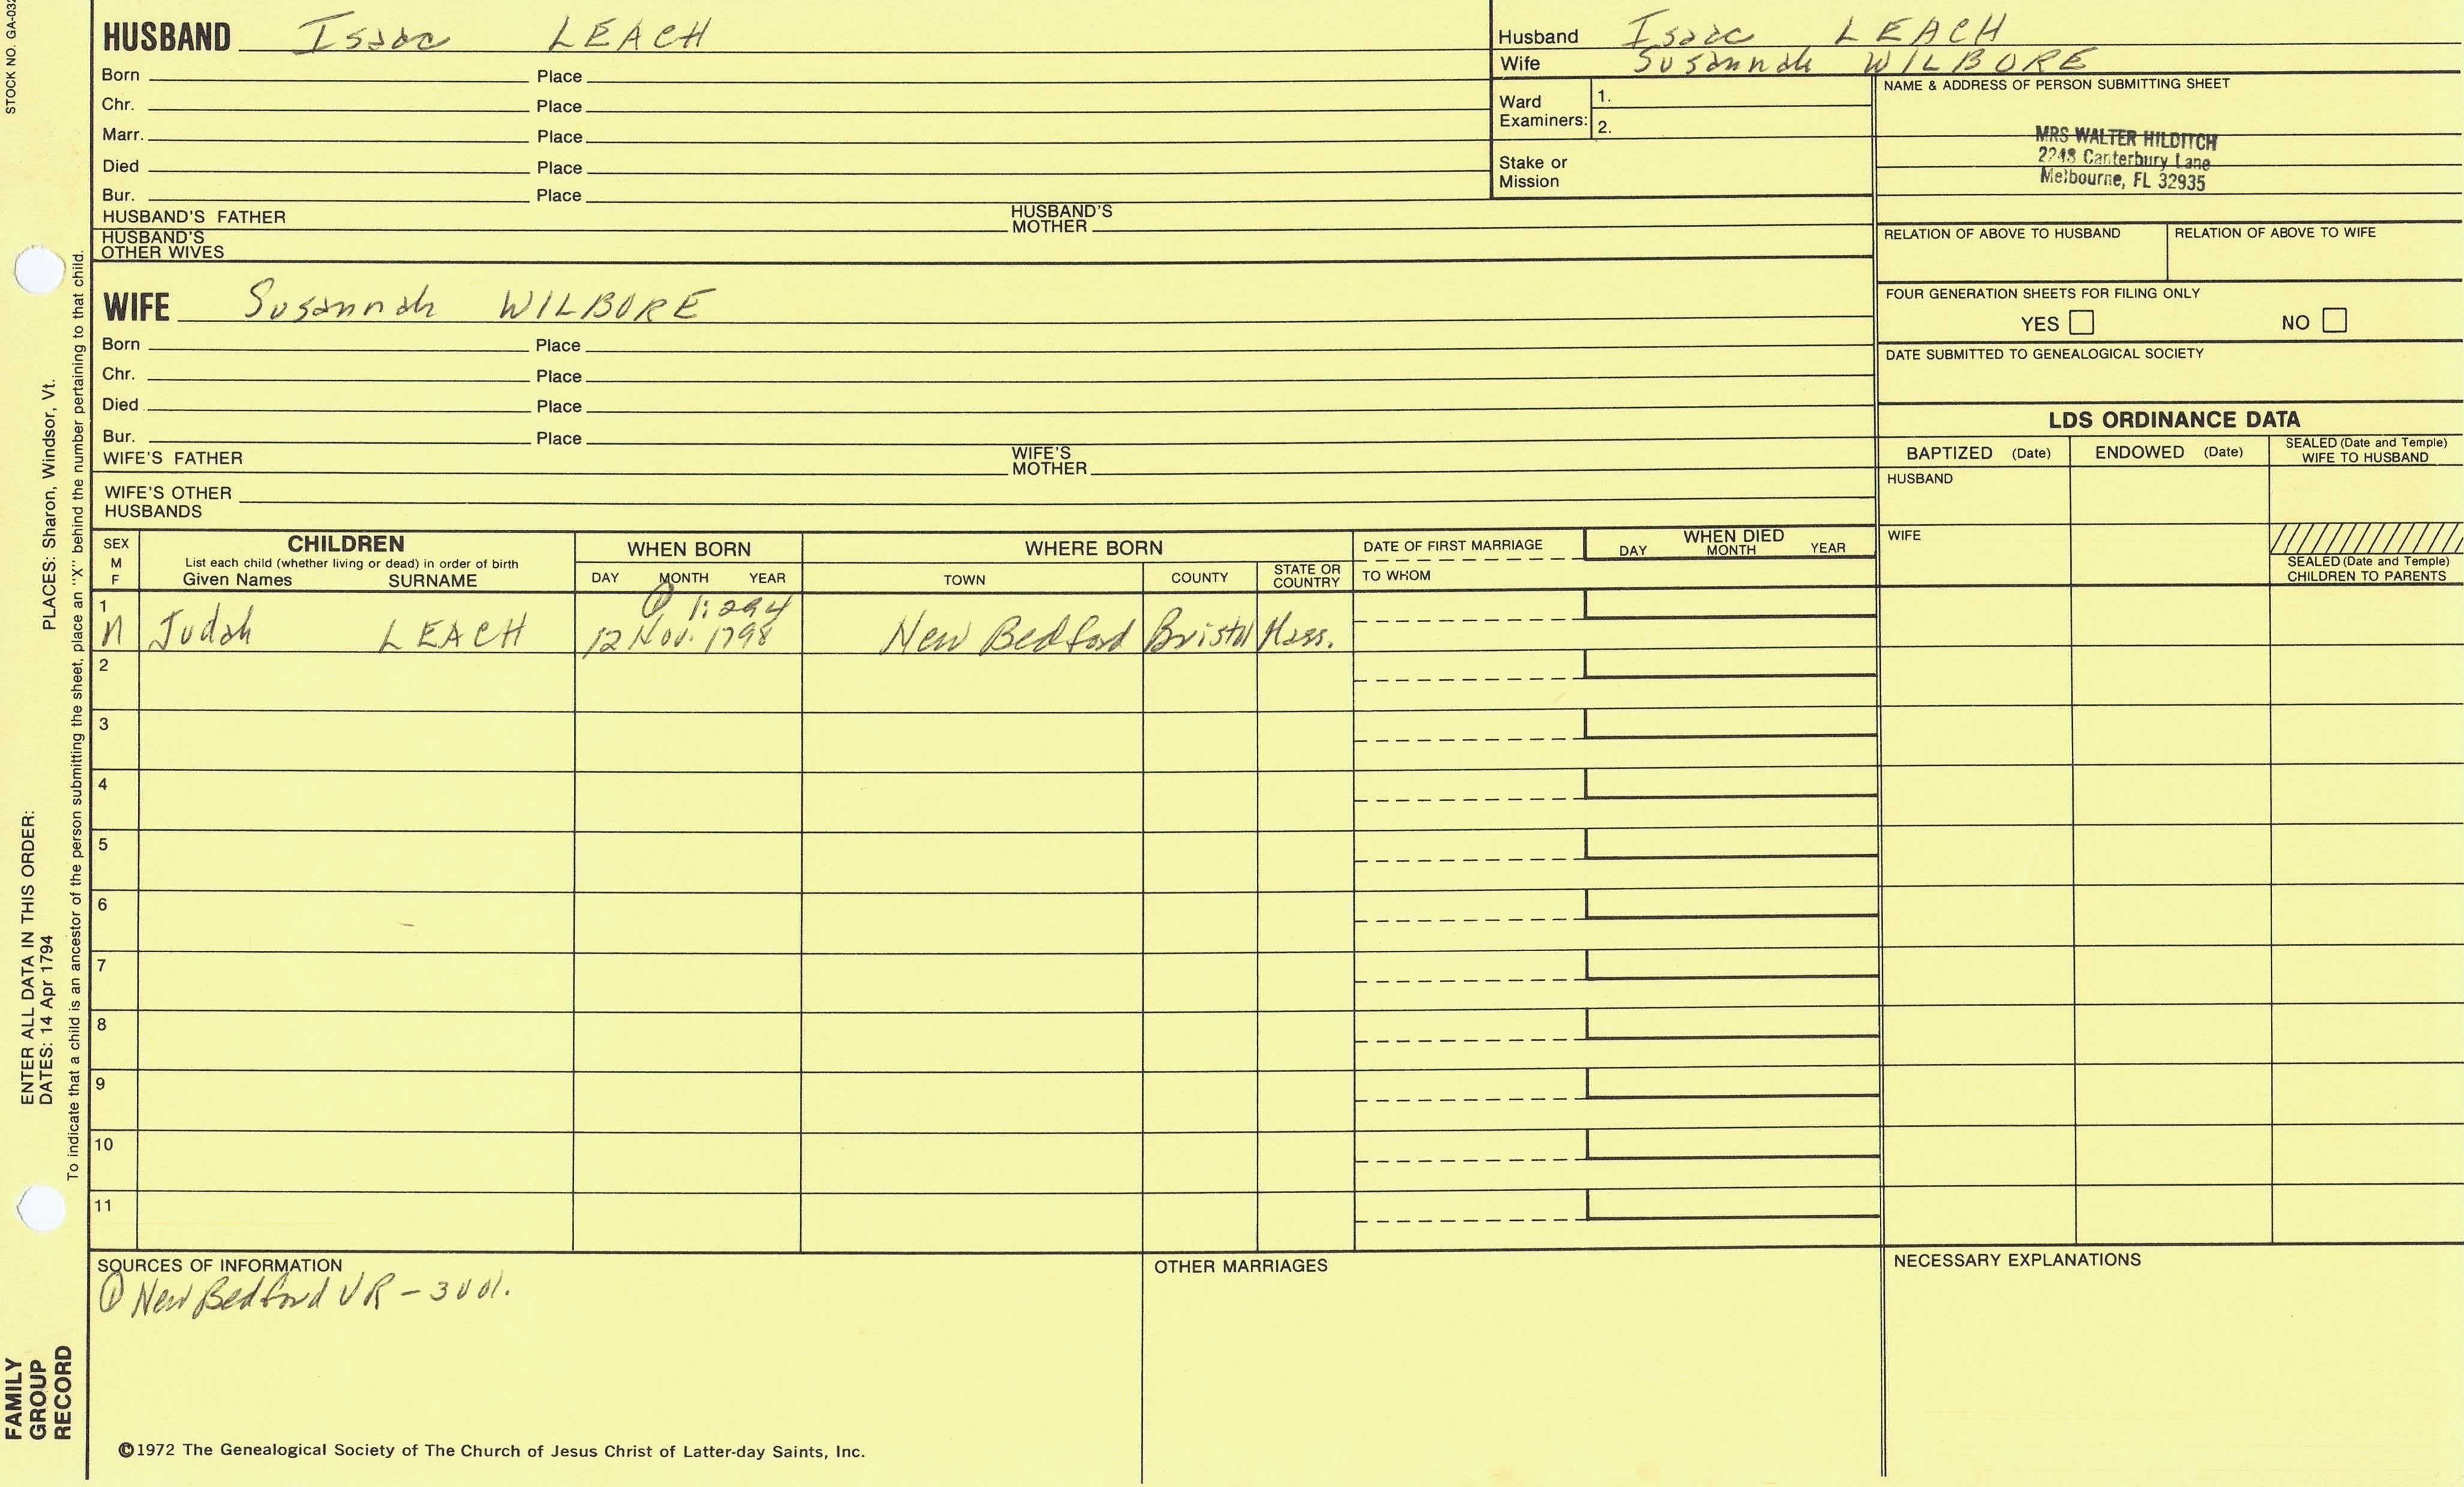 STOCK NO. GA-032
HUSBAND Isaac LEACH
Born Place
Chr. Place
Marr. Place
Died Place
Bur. Place
HUSBAND'S FATHER HUSBAND'S MOTHER
HUSBAND'S OTHER WIVES
Husband Isaac LEACH
Wife Susannah WILBORE
Ward Examiners: 1.
2.
Stake or Mission
NAME & ADDRESS OF PERSON SUBMITTING SHEET
MRS WALTER HILDITCH
2248 Canterbury Lane
Melbourne, FL 32935
RELATION OF ABOVE TO HUSBAND RELATION OF ABOVE TO WIFE
FOUR GENERATION SHEETS FOR FILING ONLY
YES NO
DATE SUBMITTED TO GENEALOGICAL SOCIETY
WIFE Susannah WILBORE
Born Place
Chr. Place
Died Place
Bur. Place
WIFE'S FATHER WIFE'S MOTHER
WIFE'S OTHER HUSBANDS
LDS ORDINANCE DATA
BAPTIZED (Date) ENDOWED (Date) SEALED (Date and Temple) WIFE TO HUSBAND
HUSBAND
WIFE
SEALED (Date and Temple) CHILDREN TO PARENTS
SEX M F
CHILDREN
List each child (whether living or dead) in order of birth
Given Names SURNAME
WHEN BORN
DAY MONTH YEAR
WHERE BORN
TOWN COUNTY STATE OR COUNTRY
DATE OF FIRST MARRIAGE
TO WHOM
WHEN DIED
DAY MONTH YEAR
① 1:294
1 M Judah LEACH 12 Nov. 1798 New Bedford Bristol Mass.
2
3
4
5
6
7
8
9
10
11
SOURCES OF INFORMATION
① New Bedford VR - 3 vol.
OTHER MARRIAGES
NECESSARY EXPLANATIONS
©1972 The Genealogical Society of The Church of Jesus Christ of Latter-day Saints, Inc.
FAMILY
GROUP
RECORD
ENTER ALL DATA IN THIS ORDER:
DATES: 14 Apr 1794 PLACES: Sharon, Windsor, Vt.
To indicate that a child is an ancestor of the person submitting the sheet, place an "X" behind the number pertaining to that child.